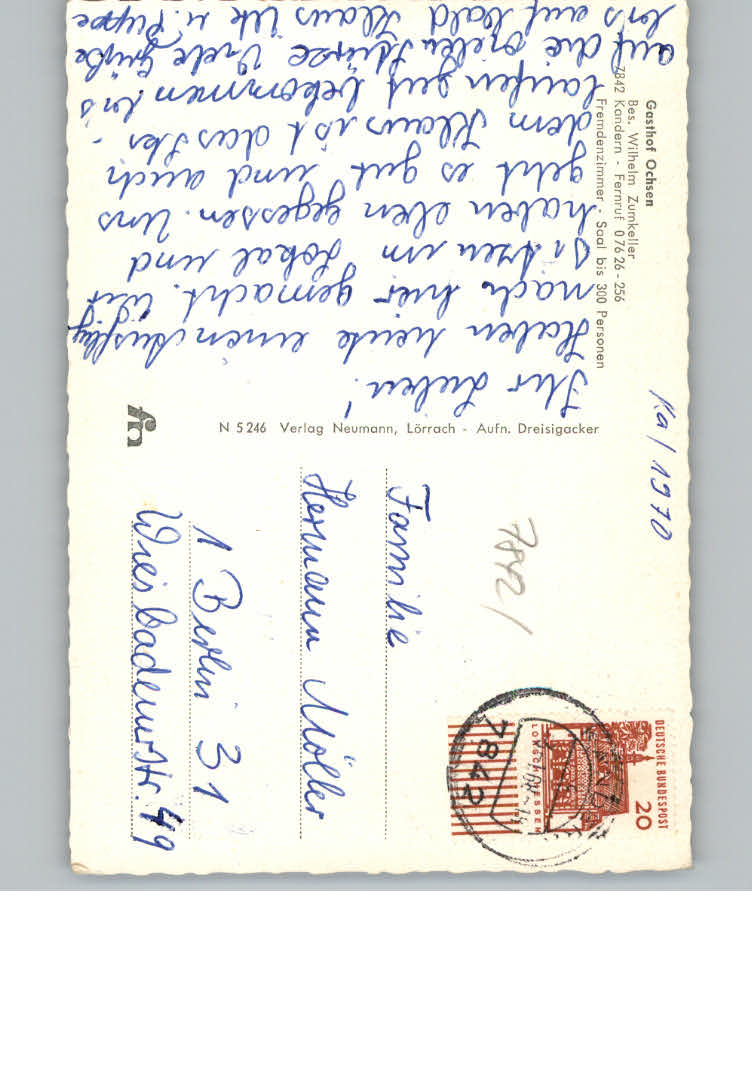 Gasthof Ochsen
Bes. Wilhelm Zumkeller
7842 Kandern - Fernruf 0 76 26 - 256
Fremdenzimmer · Saal bis 300 Personen
Ka / 1970
Ihr Lieben!
Haben heute einen Ausflug
nach hier gemacht. Wir
sitzen im Lokal und
haben eben gegessen. Uns
geht es gut und auch
dem Klaus ist das Ski-
laufen gut bekommen bis
auf die vielen Stürze Viele Grüße
bis auf bald Klaus Ilk u. Puppe
N 5246 Verlag Neumann, Lörrach - Aufn. Dreisigacker
7842 /
Familie
Hermann Möller
1 Berlin 31
Wiesbadenerstr. 49
DEUTSCHE BUNDESPOST
20
LORSCH HESSEN
7842